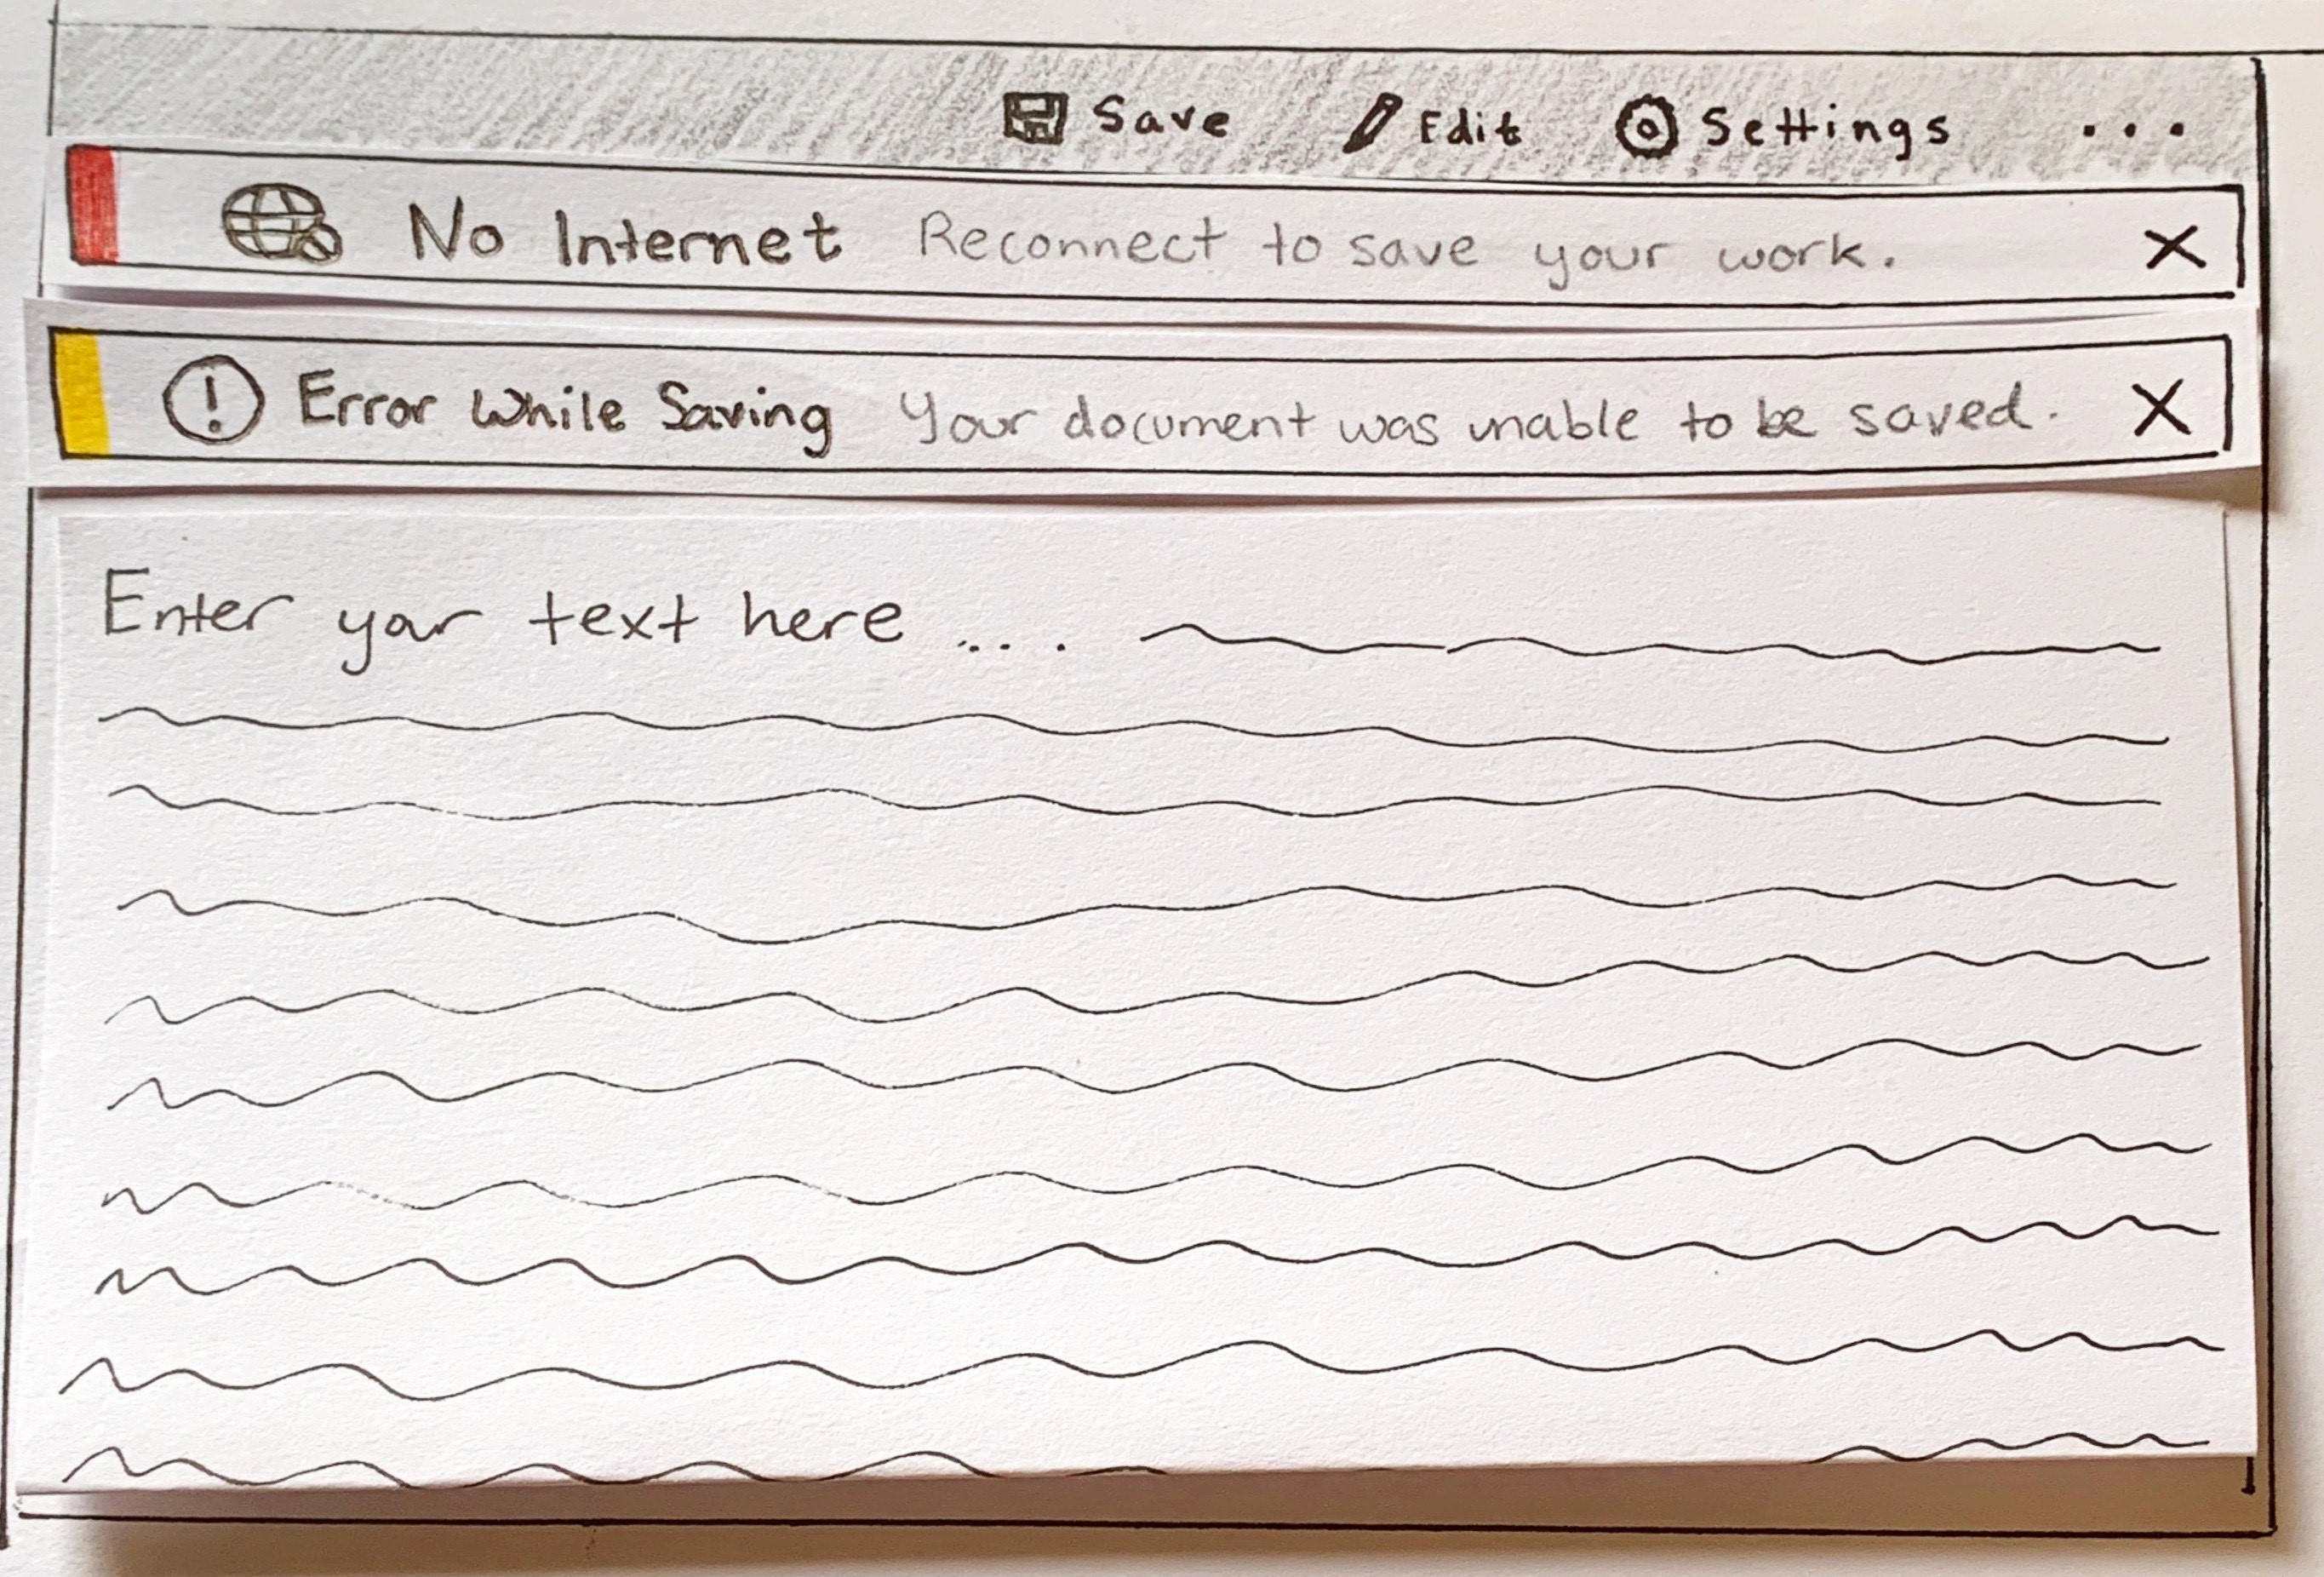 Save Edit Settings ...
No Internet Reconnect to save your work.
Error While Saving Your document was unable to be saved.
Enter your text here ...